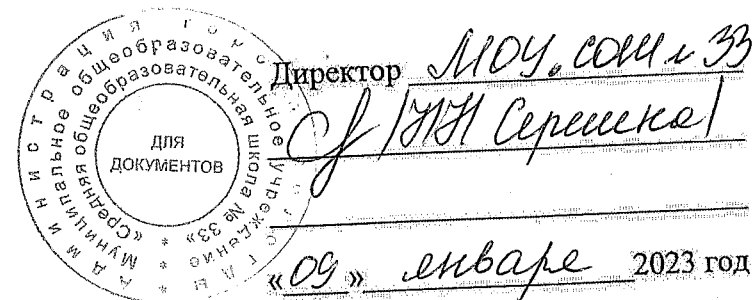 Директор МОУ. СОШ № 33
«09» января 2023 год
Администрация
Муниципальное общеобразовательное учреждение
«Средняя общеобразовательная школа № 33»
ДЛЯ
ДОКУМЕНТОВ